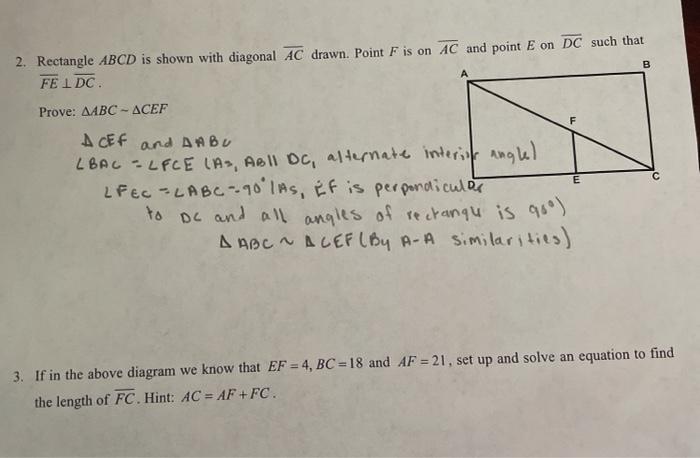 2. Rectangle ABCD is shown with diagonal AC drawn. Point F is on AC and point E on DC such that
FE ⊥ DC.
B
A
Prove: ΔABC ~ ΔCEF
F
Δ CEF and ΔABC
∠BAC = ∠FCE (As, AB || DC, alternate interior angle)
∠FEC = ∠ABC = 90° (As, EF is perpendicular
D
E
C
to DC and all angles of rectangle is 90°)
Δ ABC ~ Δ CEF (By A-A similarities)
3. If in the above diagram we know that EF = 4, BC = 18 and AF = 21, set up and solve an equation to find
the length of FC. Hint: AC = AF + FC.